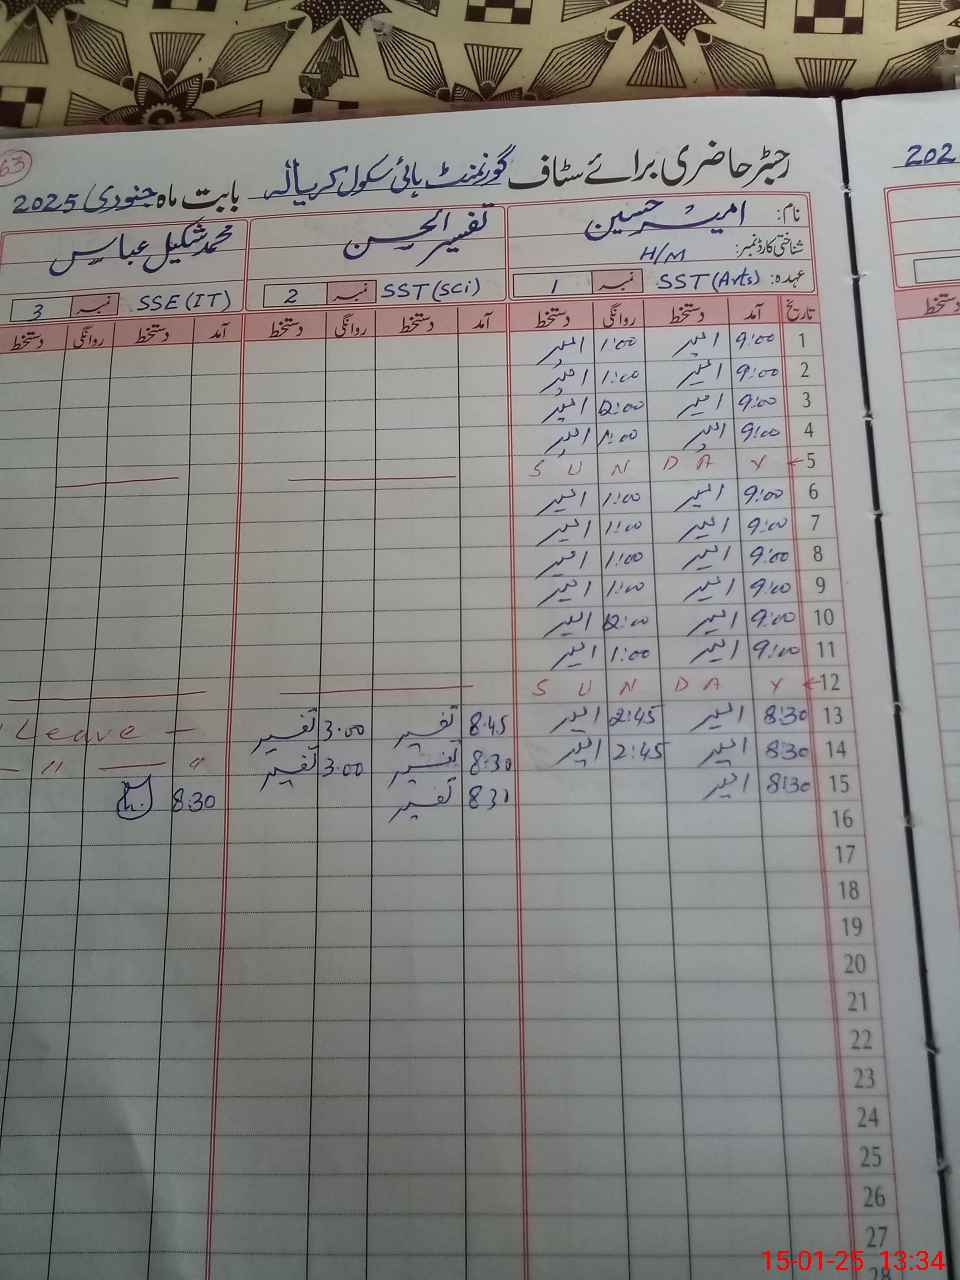 63
رجسٹر حاضری برائے سٹاف گورنمنٹ ہائی سکول کریالہ بابت ماہ جنوری 2025
202
نام: امیر حسین تفسیر الحسن محمد شکیل عباس
شناختی کارڈ نمبر: H/M
عہدہ: SST (Arts) نمبر 1 SST (Sci) نمبر 2 SSE (IT) نمبر 3
تاریخ آمد دستخط روانگی دستخط آمد دستخط روانگی دستخط آمد دستخط روانگی دستخط
1 9:00 امیر 1:00 امیر
2 9:00 امیر 1:00 امیر
3 9:00 امیر 12:00 امیر
4 9:00 امیر 1:00 امیر
5 ← S U N D A Y
6 9:00 امیر 1:00 امیر
7 9:00 امیر 1:00 امیر
8 9:00 امیر 1:00 امیر
9 9:00 امیر 1:00 امیر
10 9:00 امیر 12:00 امیر
11 9:00 امیر 1:00 امیر
12 ← S U N D A Y
13 8:30 امیر 2:45 امیر 8:45 تفسیر 3:00 تفسیر Leave —
14 8:30 امیر 2:45 امیر 8:30 تفسیر 3:00 تفسیر — " — "
15 8:30 امیر 8:31 تفسیر 8:30
16
17
18
19
20
21
22
23
24
25
26
27
28
15-01-25 13:34